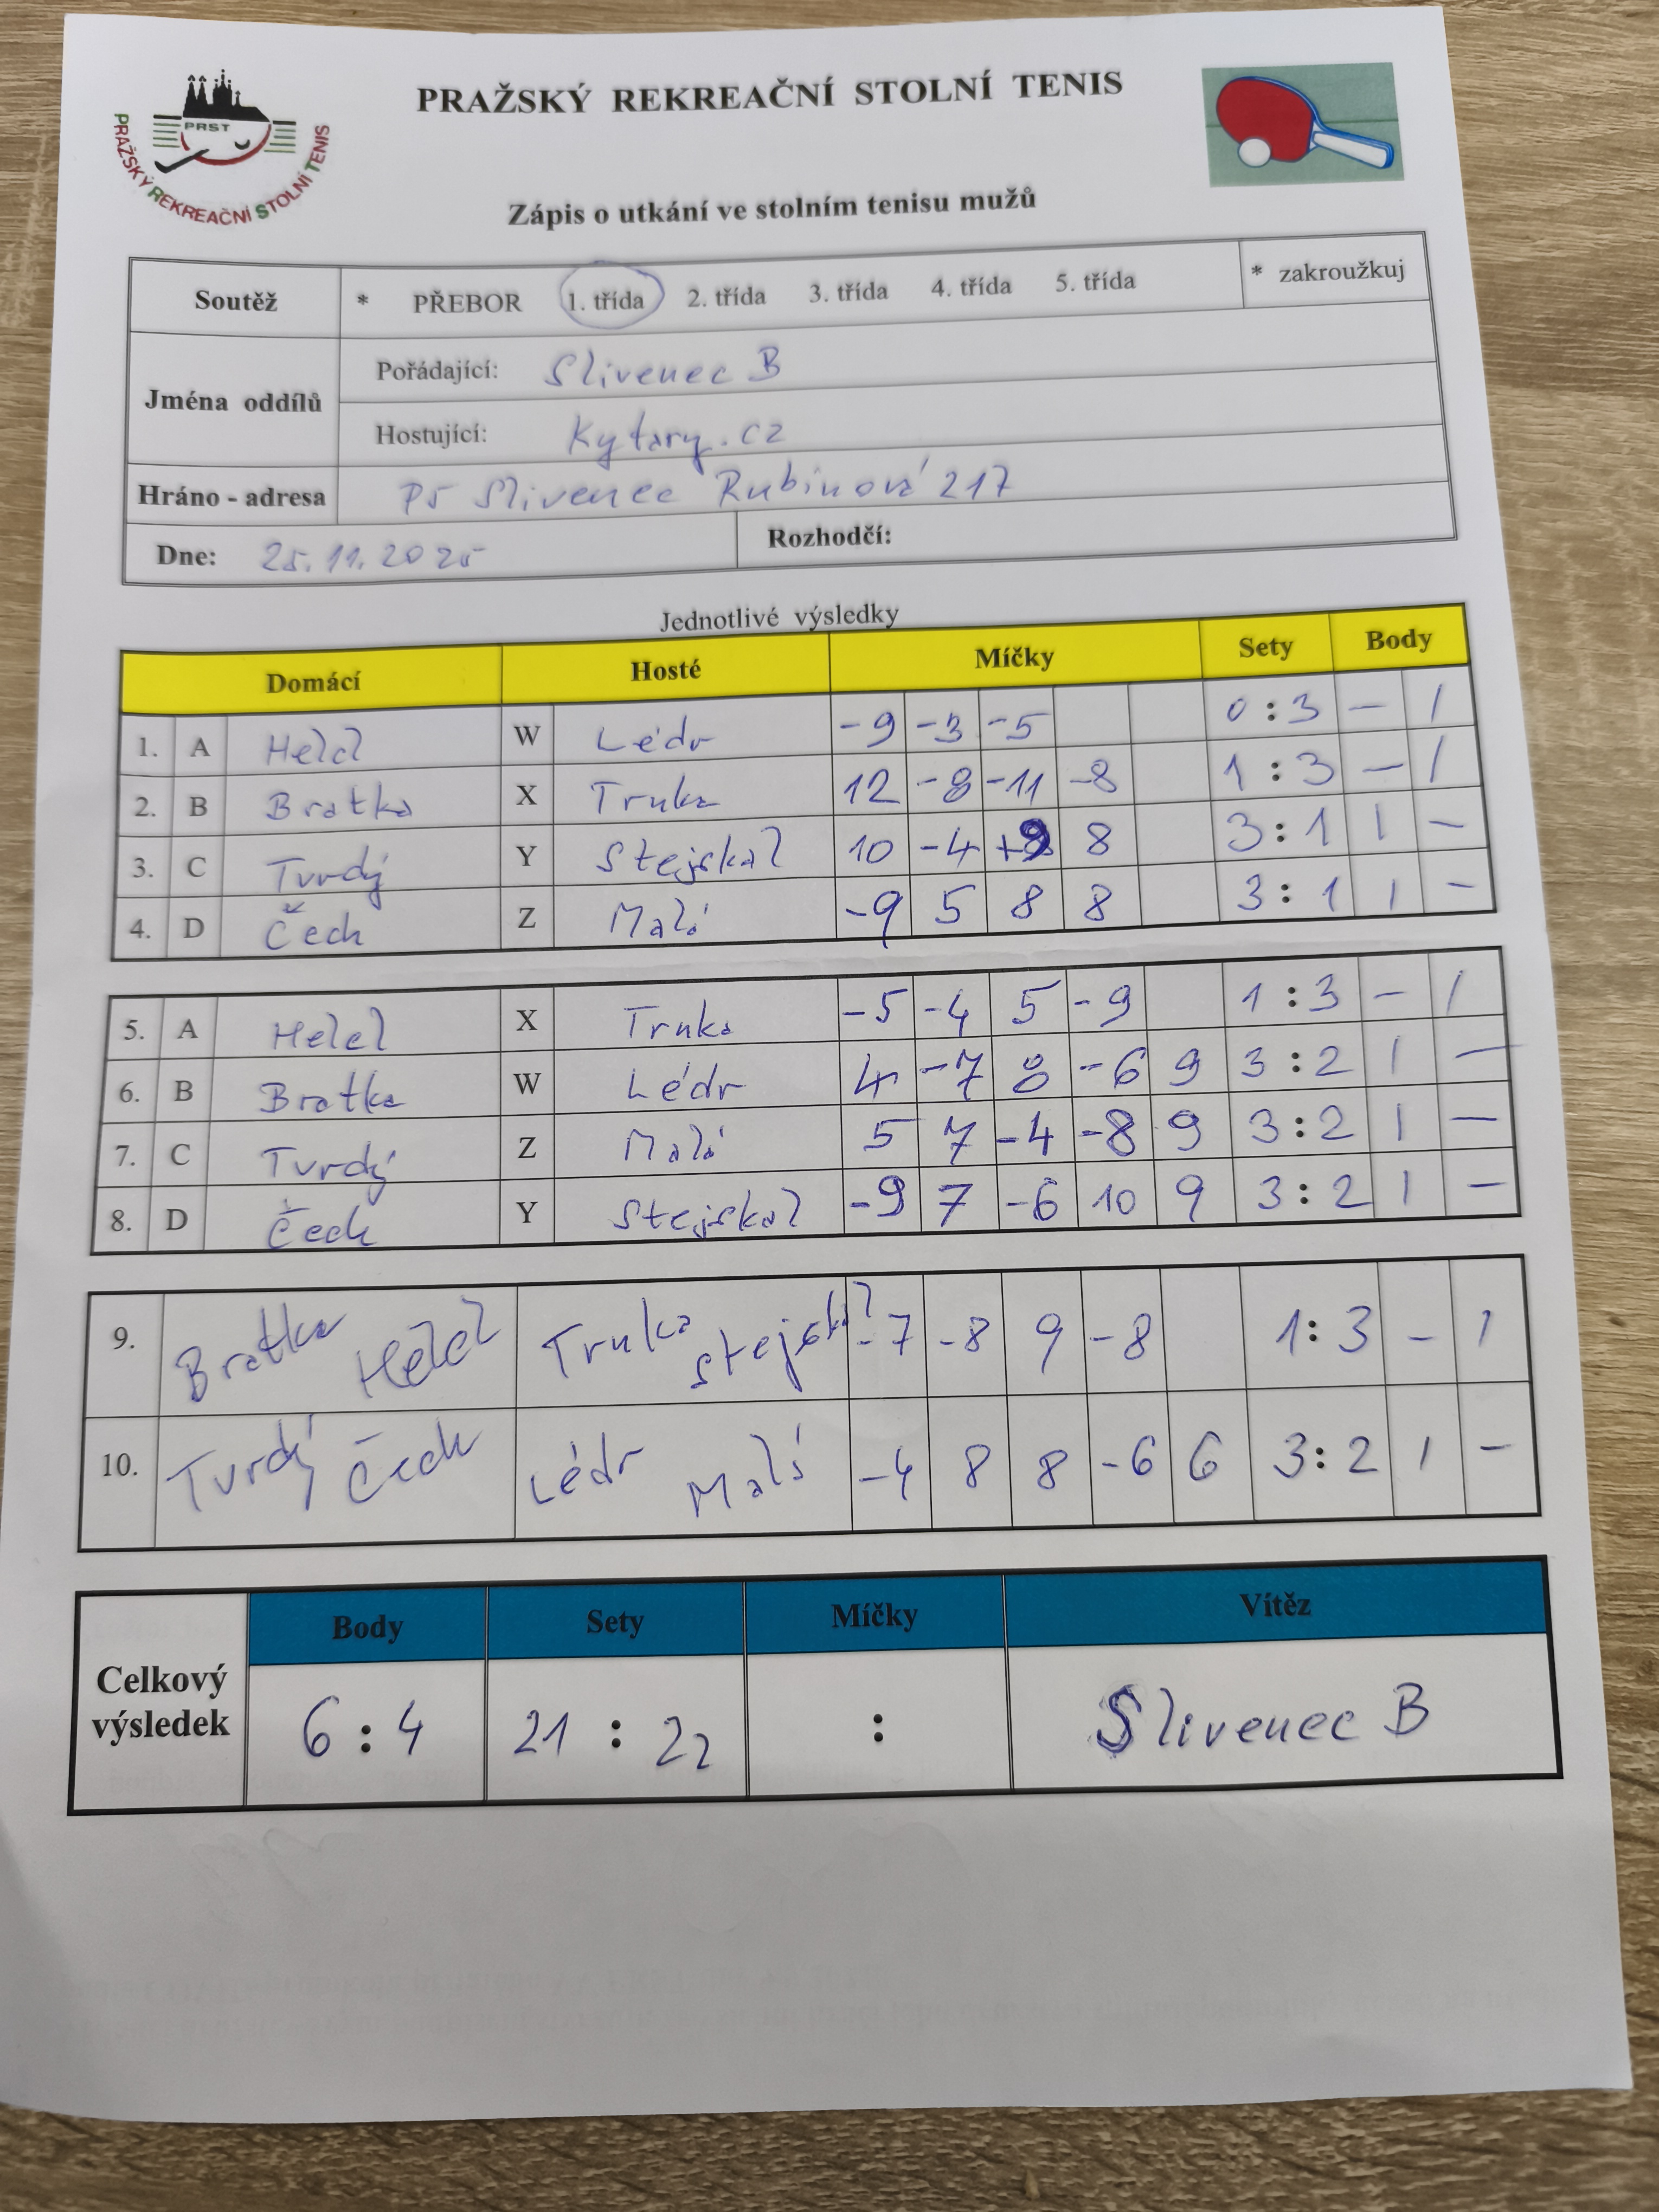 PRST
PRAŽSKÝ REKREAČNÍ STOLNÍ TENIS
PRAŽSKÝ REKREAČNÍ STOLNÍ TENIS
Zápis o utkání ve stolním tenisu mužů
Soutěž * PŘEBOR 1. třída 2. třída 3. třída 4. třída 5. třída * zakroužkuj
Jména oddílů
Pořádající: Slivenec B
Hostující: Kytary.cz
Hráno - adresa P5 Slivenec Rubinová 217
Dne: 25.11.2025 Rozhodčí:
Jednotlivé výsledky
Domácí Hosté Míčky Sety Body
1. A Held W Lédr -9 -3 -5 0 : 3 - 1
2. B Bratka X Trnka 12 -8 -11 -8 1 : 3 - 1
3. C Tvrdý Y Stejskal 10 -4 +9 8 3 : 1 1 -
4. D Čech Z Malý -9 5 8 8 3 : 1 1 -
5. A Held X Trnka -5 -4 5 -9 1 : 3 - 1
6. B Bratka W Lédr 4 -7 8 -6 9 3 : 2 1 -
7. C Tvrdý Z Malý 5 7 -4 -8 9 3 : 2 1 -
8. D Čech Y Stejskal -9 7 -6 10 9 3 : 2 1 -
9. Bratka Held Trnka Stejskal -7 -8 9 -8 1 : 3 - 1
10. Tvrdý Čech Lédr Malý -4 8 8 -6 6 3 : 2 1 -
Body Sety Míčky Vítěz
Celkový výsledek 6 : 4 21 : 22 : Slivenec B